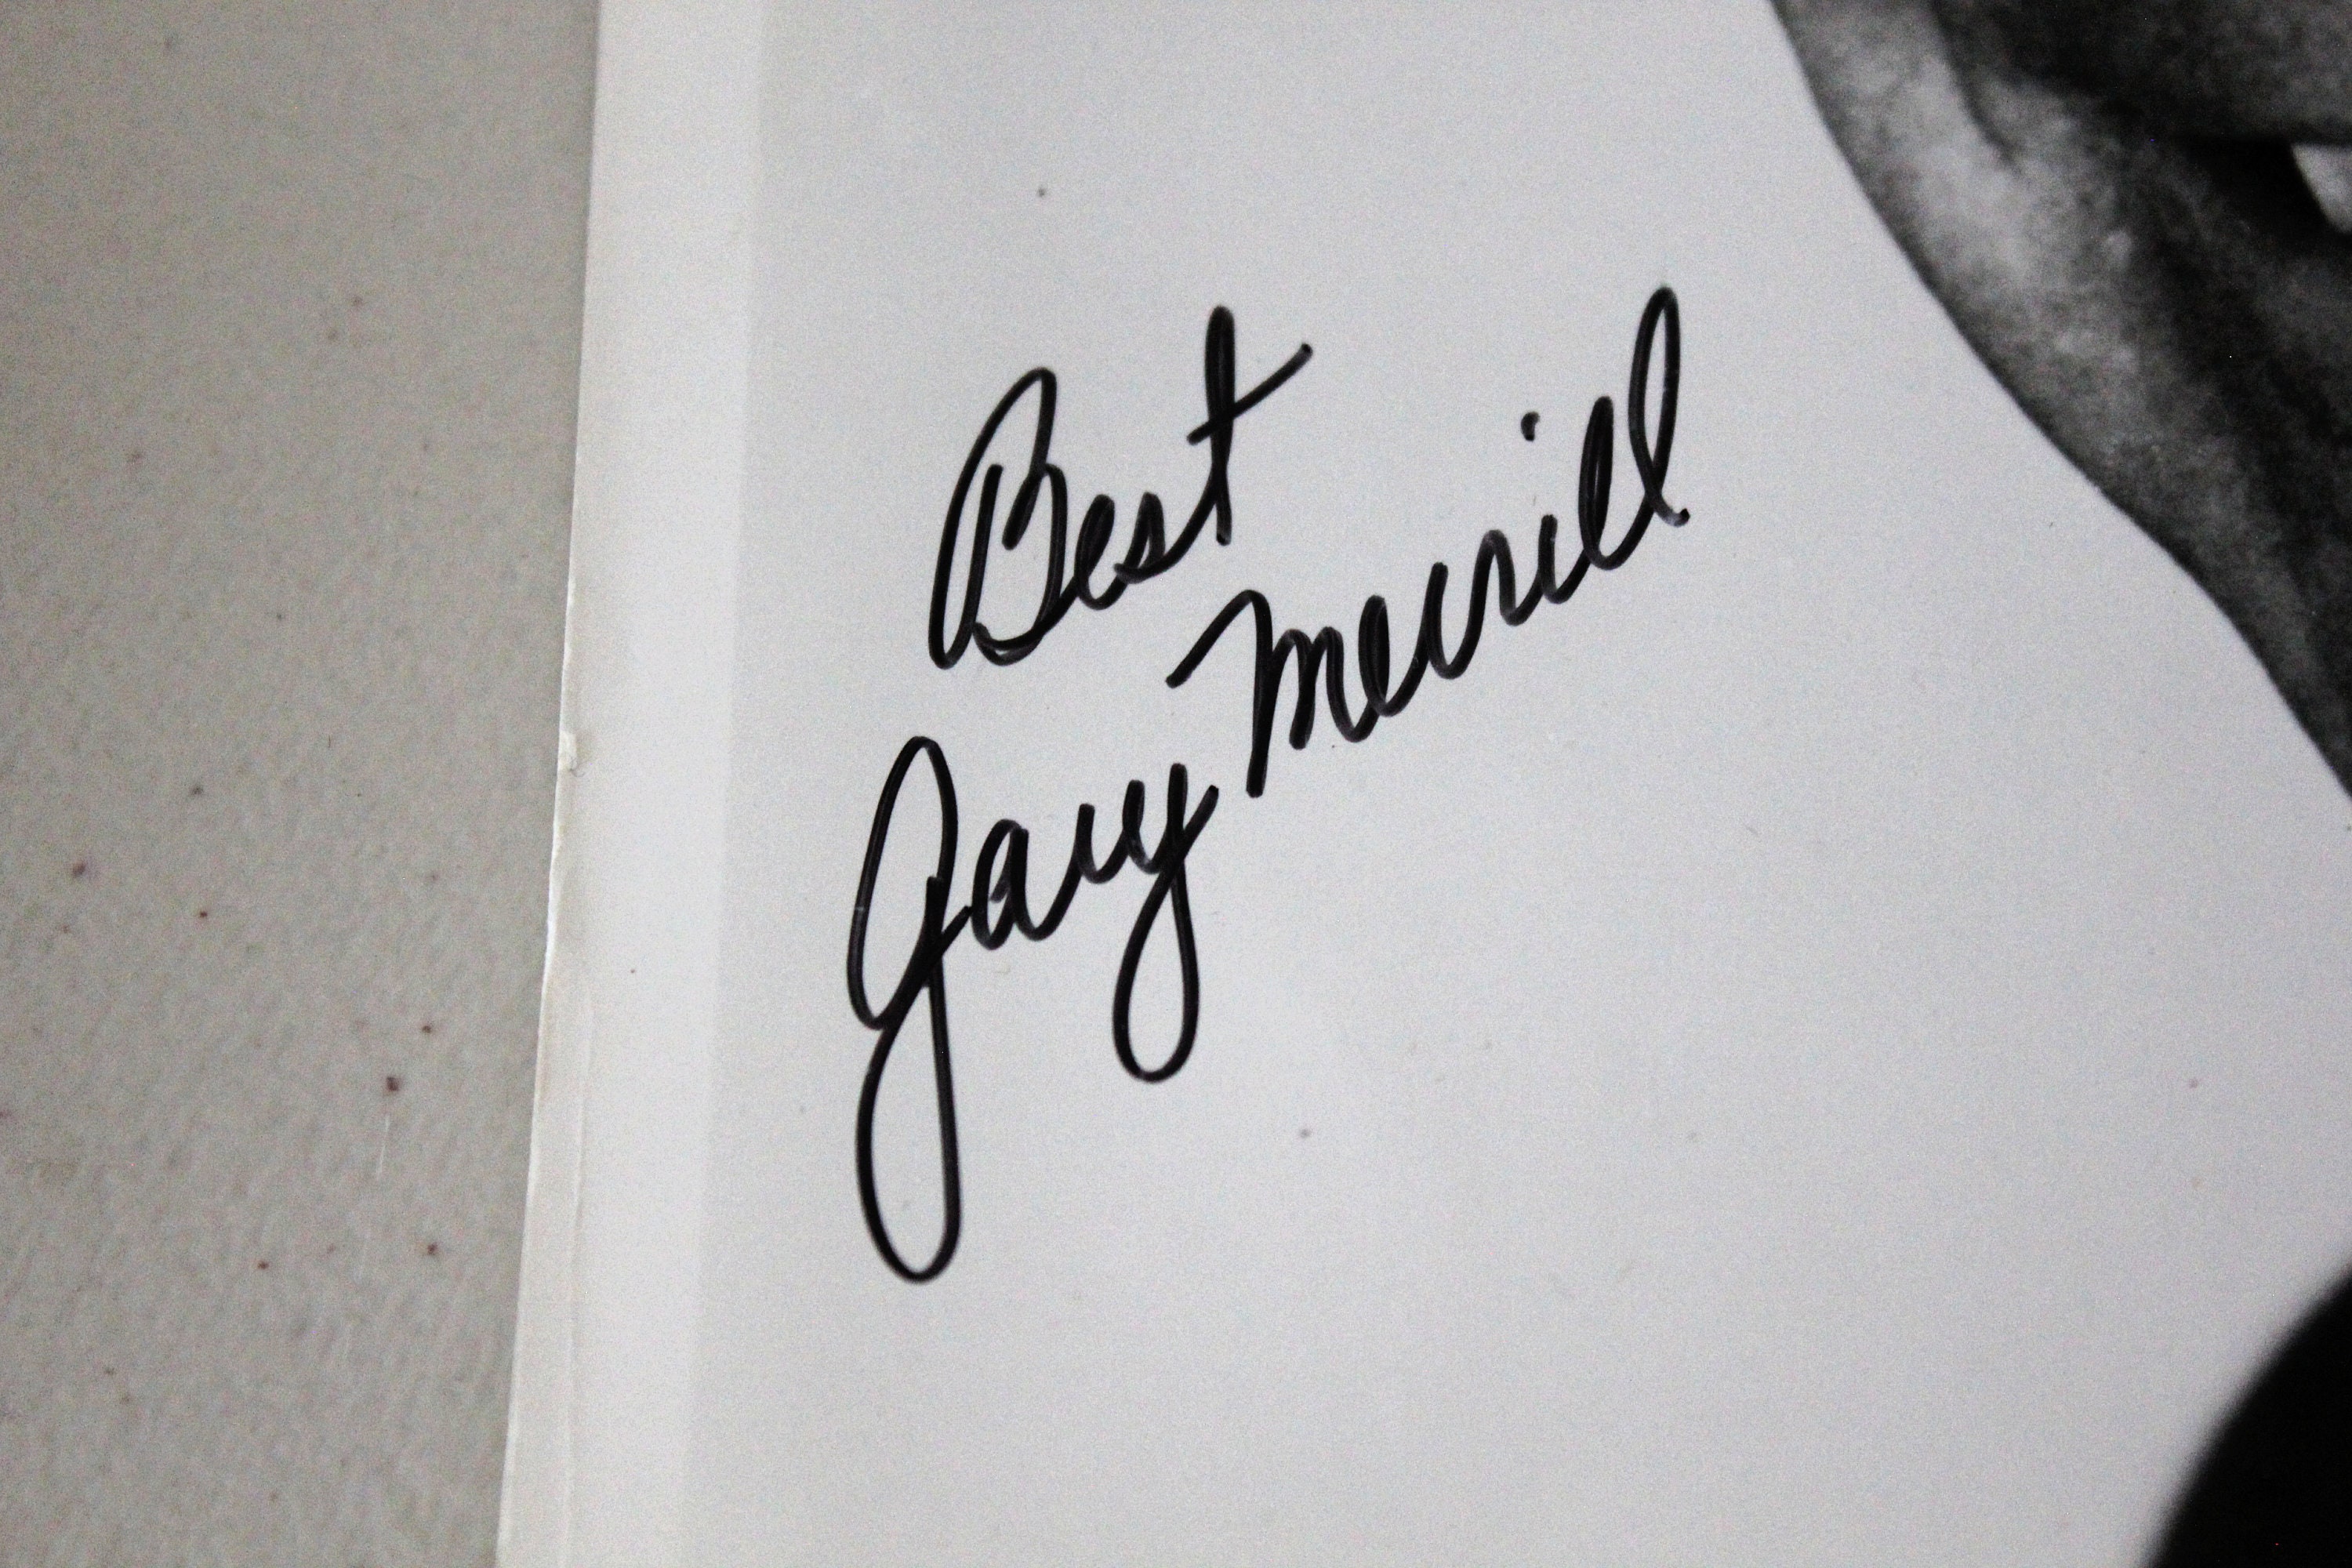 Best
Gary Merrill